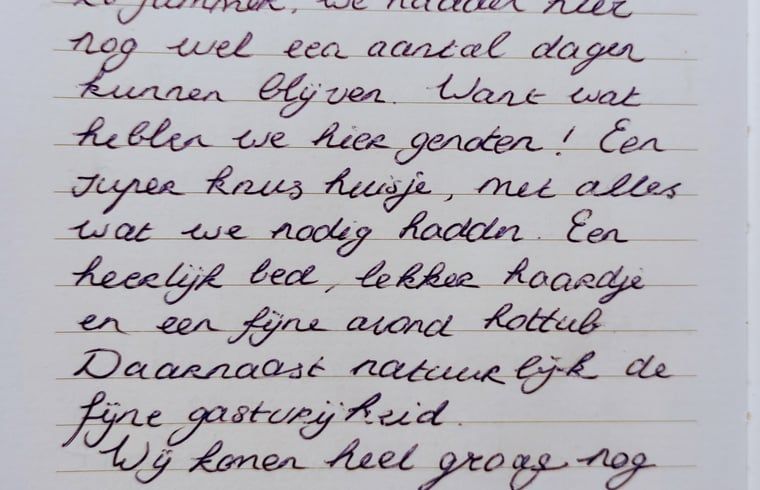 zo jammer, we hadden hier
nog wel een aantal dagen
kunnen blijven. Want wat
hebben we hier genoten! Een
super knus huisje, met alles
wat we nodig hadden. Een
heerlijk bed, lekker haardje
en een fijne avond hottub
Daarnaast natuurlijk de
fijne gastvrijheid.
Wij komen heel graag nog